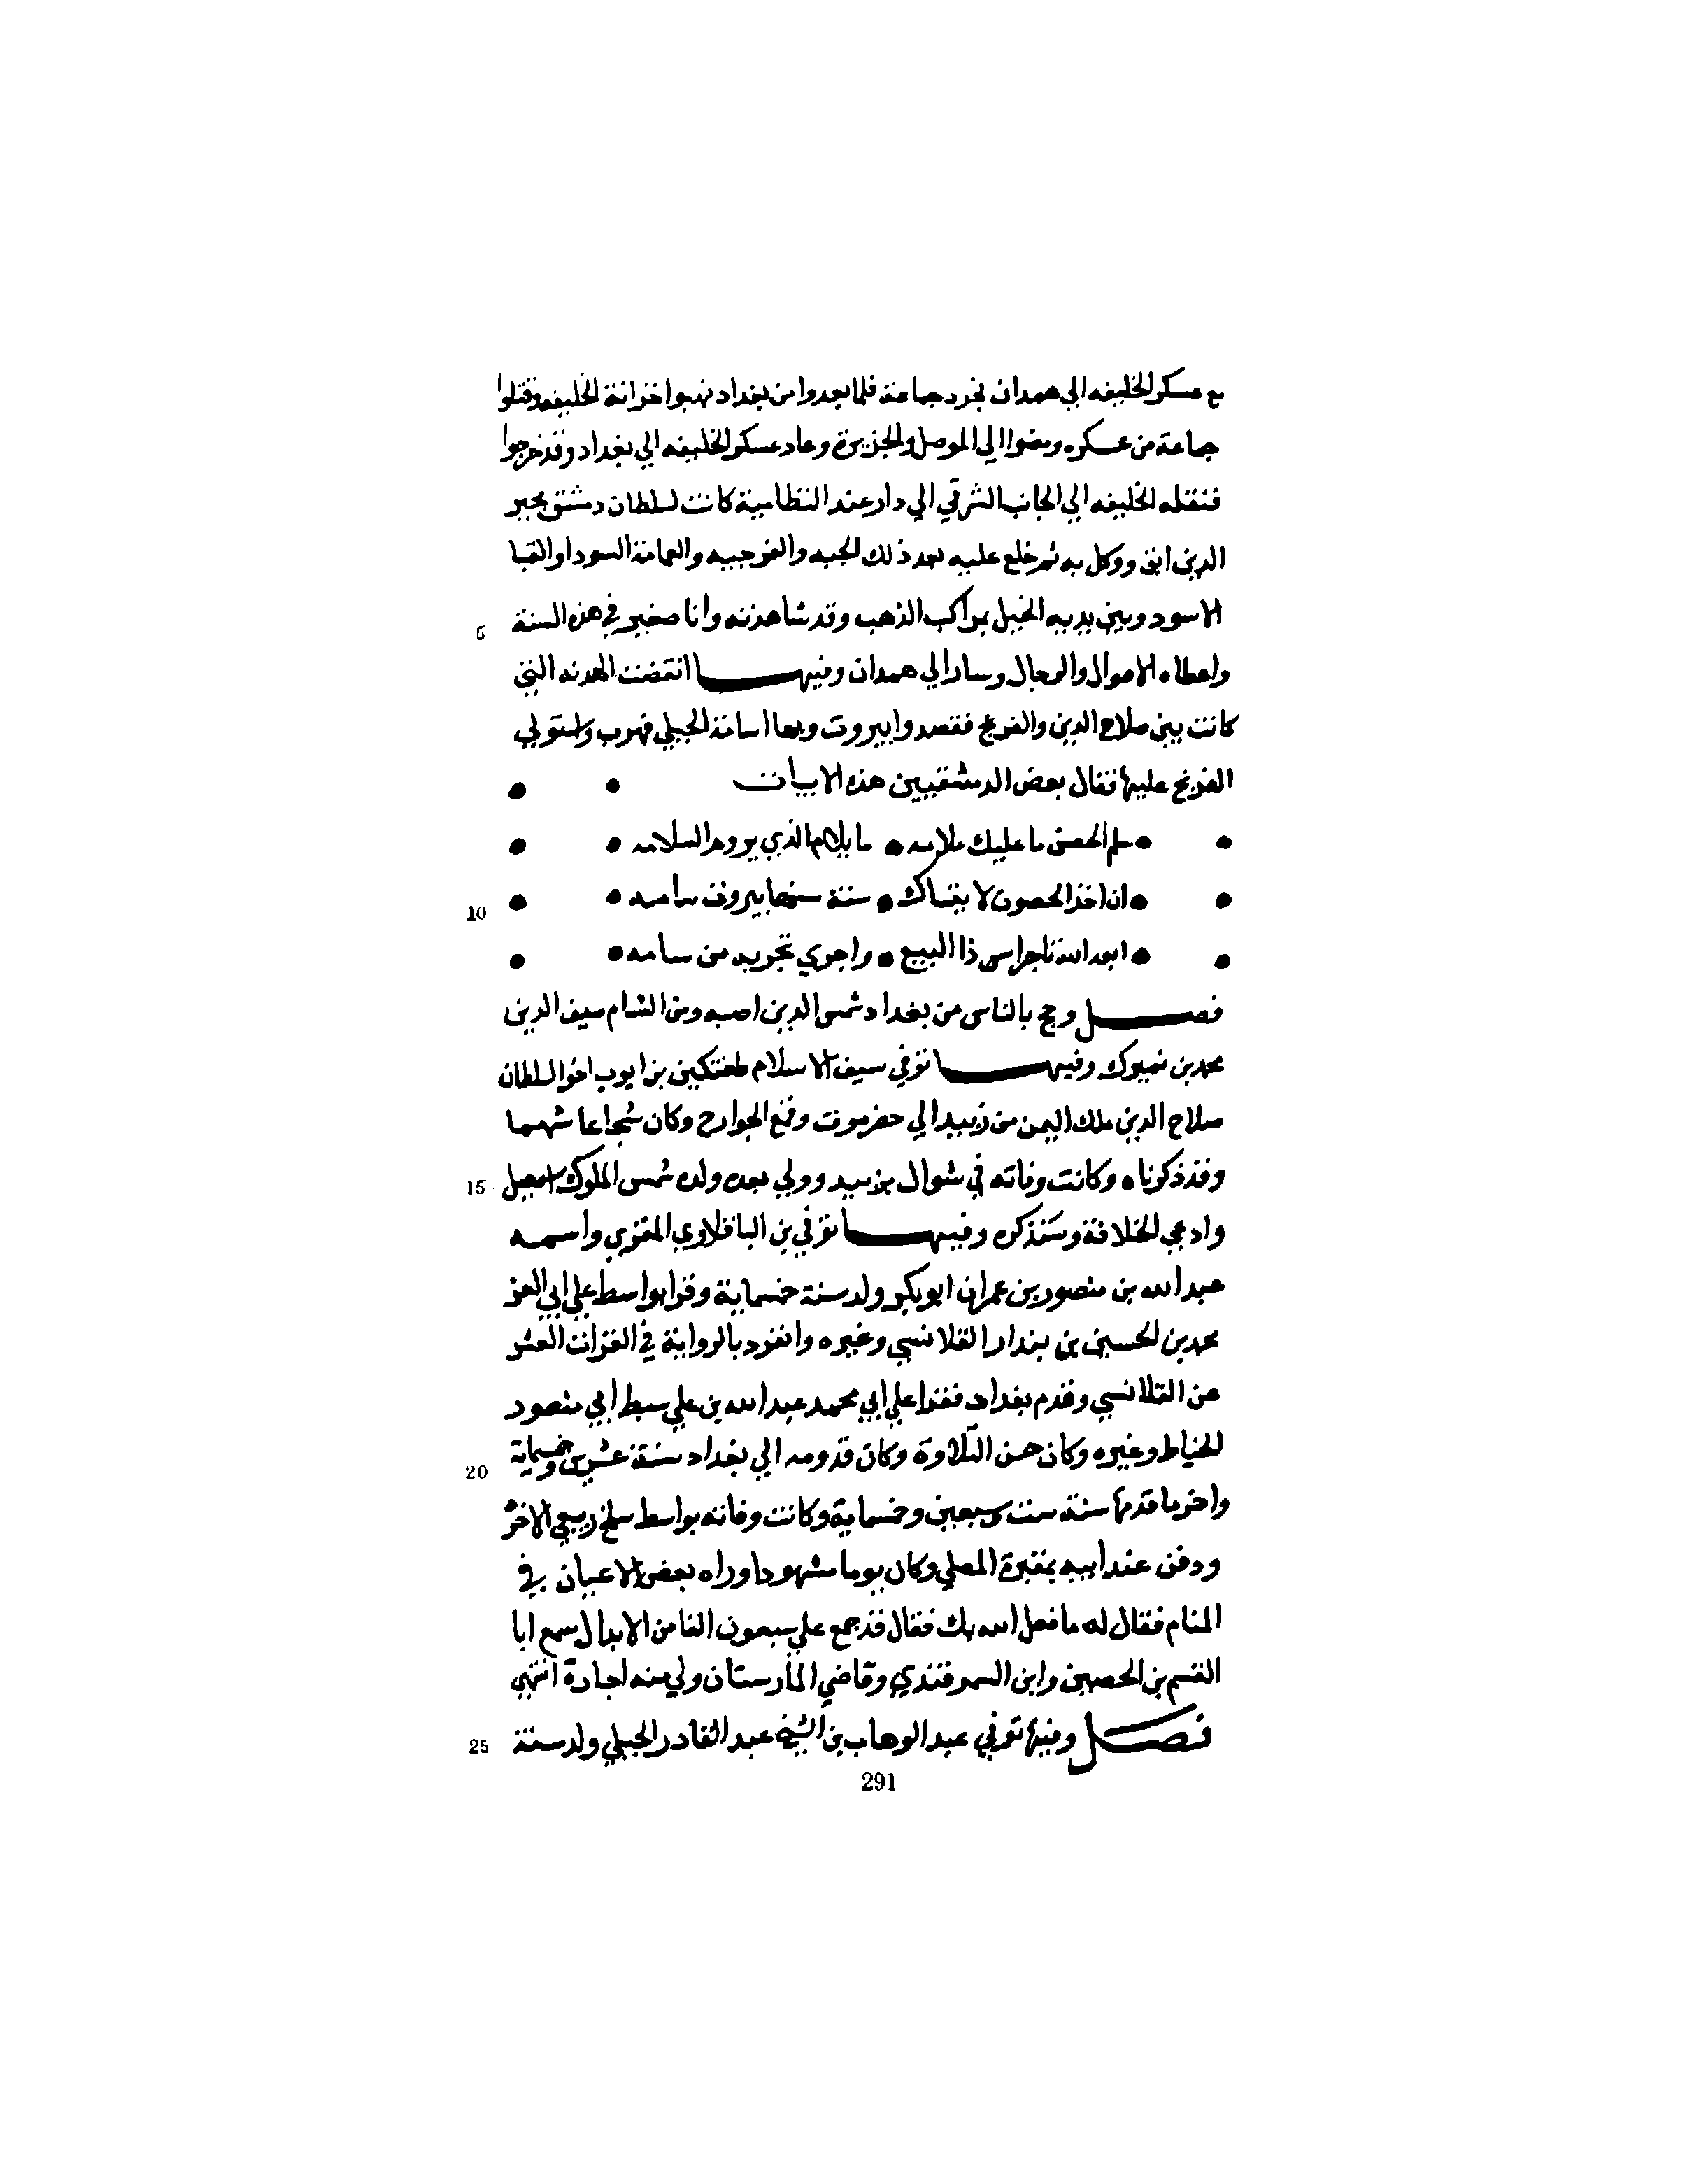 مع عسكر الخليفه الي همدان فجرد جماعة فلما بعدوا من بغداد نهبوا خزانة الخليفه وقتلوا
جماعة من عسكره ومضوا الي الموصل والجزيرة وعاد عسكر الخليفه الي بغداد وقد خرجوا
فنقله الخليفه الي الجانب الشرقي الي دار عند النظامية كانت لسلطان دمشق مجير
الدين ابق ووكل به ثم خلع عليه بعد ذلك الجبه والفرجيه والعمامة السودا والقبا
الاسود وبين يديه الخيل بمراكب الذهب وقد شاهدته وانا صغير في هذه السنة
5
واعطاه الاموال والرجال وسار الي همدان وفيها انقضت الهدنه التي
كانت بين صلاح الدين والفرنج فقصدوا بيروت وبها اسامة الجبلي فهرب واستولي
الفرنج عليها فقال بعض الدمشقيين هذه الابيات
سلم الحصن ما عليك ملامه • ما يلام الذي يروم السلامه
ان اخذ الحصون لا بقتال • سنة سنها بيروت سامه
10
ابعد الله تاجرا سن ذا البيع • واجري بخزيه من سامه
فصل وحج بالناس من بغداد شمس الدين اصبه ومن الشام سيف الدين
محمد بن تميرك وفيها توفي سيف الاسلام طغتكين بن ايوب اخو السلطان
صلاح الدين ملك اليمن من زبيد الي حضرموت وقمع الخوارج وكان شجاعا شهما
وقد ذكرناه وكانت وفاته في شوال بزبيد وولي بعده ولده شمس الملوك اسمعيل
15
وادعي الخلافة وسنذكره وفيها توفي بن الباقلاوي المقري واسمه
عبد الله بن منصور بن عمران ابو بكر ولد سنة خمسماية وقرا بواسط علي ابي العز
محمد بن الحسين بن بندار القلانسي وغيره وانفرد بالرواية في القرات العشر
عن القلانسي وقدم بغداد فقرا علي ابي محمد عبد الله بن علي سبط ابي منصور
الخياط وغيره وكان حسن التلاوة وكان قدومه الي بغداد سنة عشرين وخمسماية
20
واخر ما قدمها سنة ست وسبعين وخمسماية وكانت وفاته بواسط سلخ ربيع الاخر
ودفن عند ابيه بمقبرة المصلي وكان يوما مشهودا وراه بعض الاعيان في
المنام فقال له ما فعل الله بك فقال قد جمع علي سبعون الفا من الابدال سمع ابا
القسم بن الحصين وابن السمرقندي وقاضي المارستان ولي منه اجازة انتهي
فصل وفيها توفي عبد الوهاب بن الشيخ عبد القادر الجيلي ولد سنة
25
291